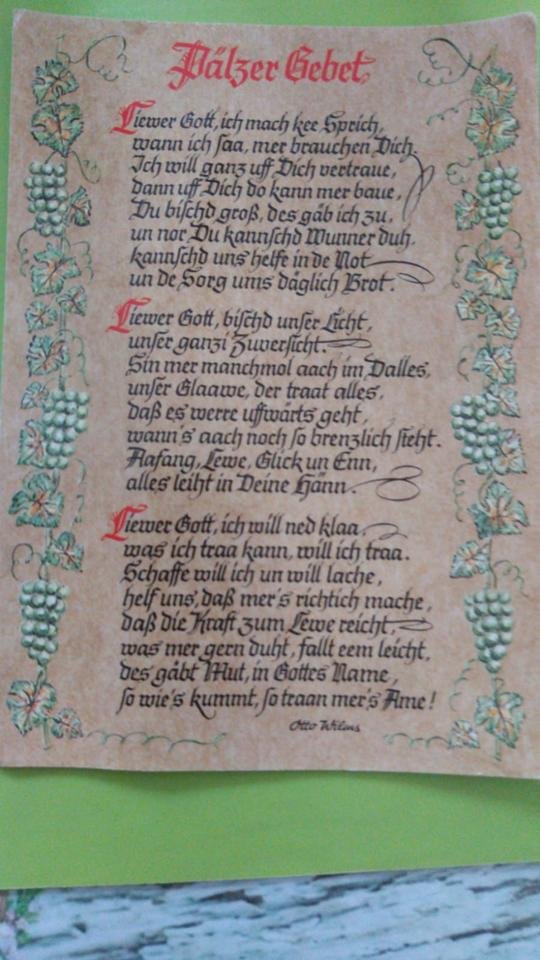 Pälzer Gebet
Liewer Gott, ich mach kee Sprich,
wann ich saa, mer brauchen Dich.
Ich will ganz uff Dich vertraue,
dann uff Dich do kann mer baue,
Du bischd groß, des gäb ich zu,
un nor Du kannschd Wunner duh,
kannschd uns helfe in de Not
un de Sorg ums däglich Brot.
Liewer Gott, bischd unser Licht,
unser ganzi Zuversicht.
Sin mer manchmol aach im Dalles,
unser Glaawe, der traat alles,
daß es werre uffwärts geht,
wann's aach noch so brenzlich steht.
Aafang, Lewe, Glick un Enn,
alles leiht in Deine Hänn.
Liewer Gott, ich will ned klaa,
was ich traa kann, will ich traa.
Schaffe will ich un will lache,
helf uns, daß mer's richtich mache,
daß die Kraft zum Lewe reicht,
was mer gern duht, fallt eem leicht,
des gäbt Mut, in Gottes Name,
so wie's kummt, so traan mer's Ame!
Otto Wilms